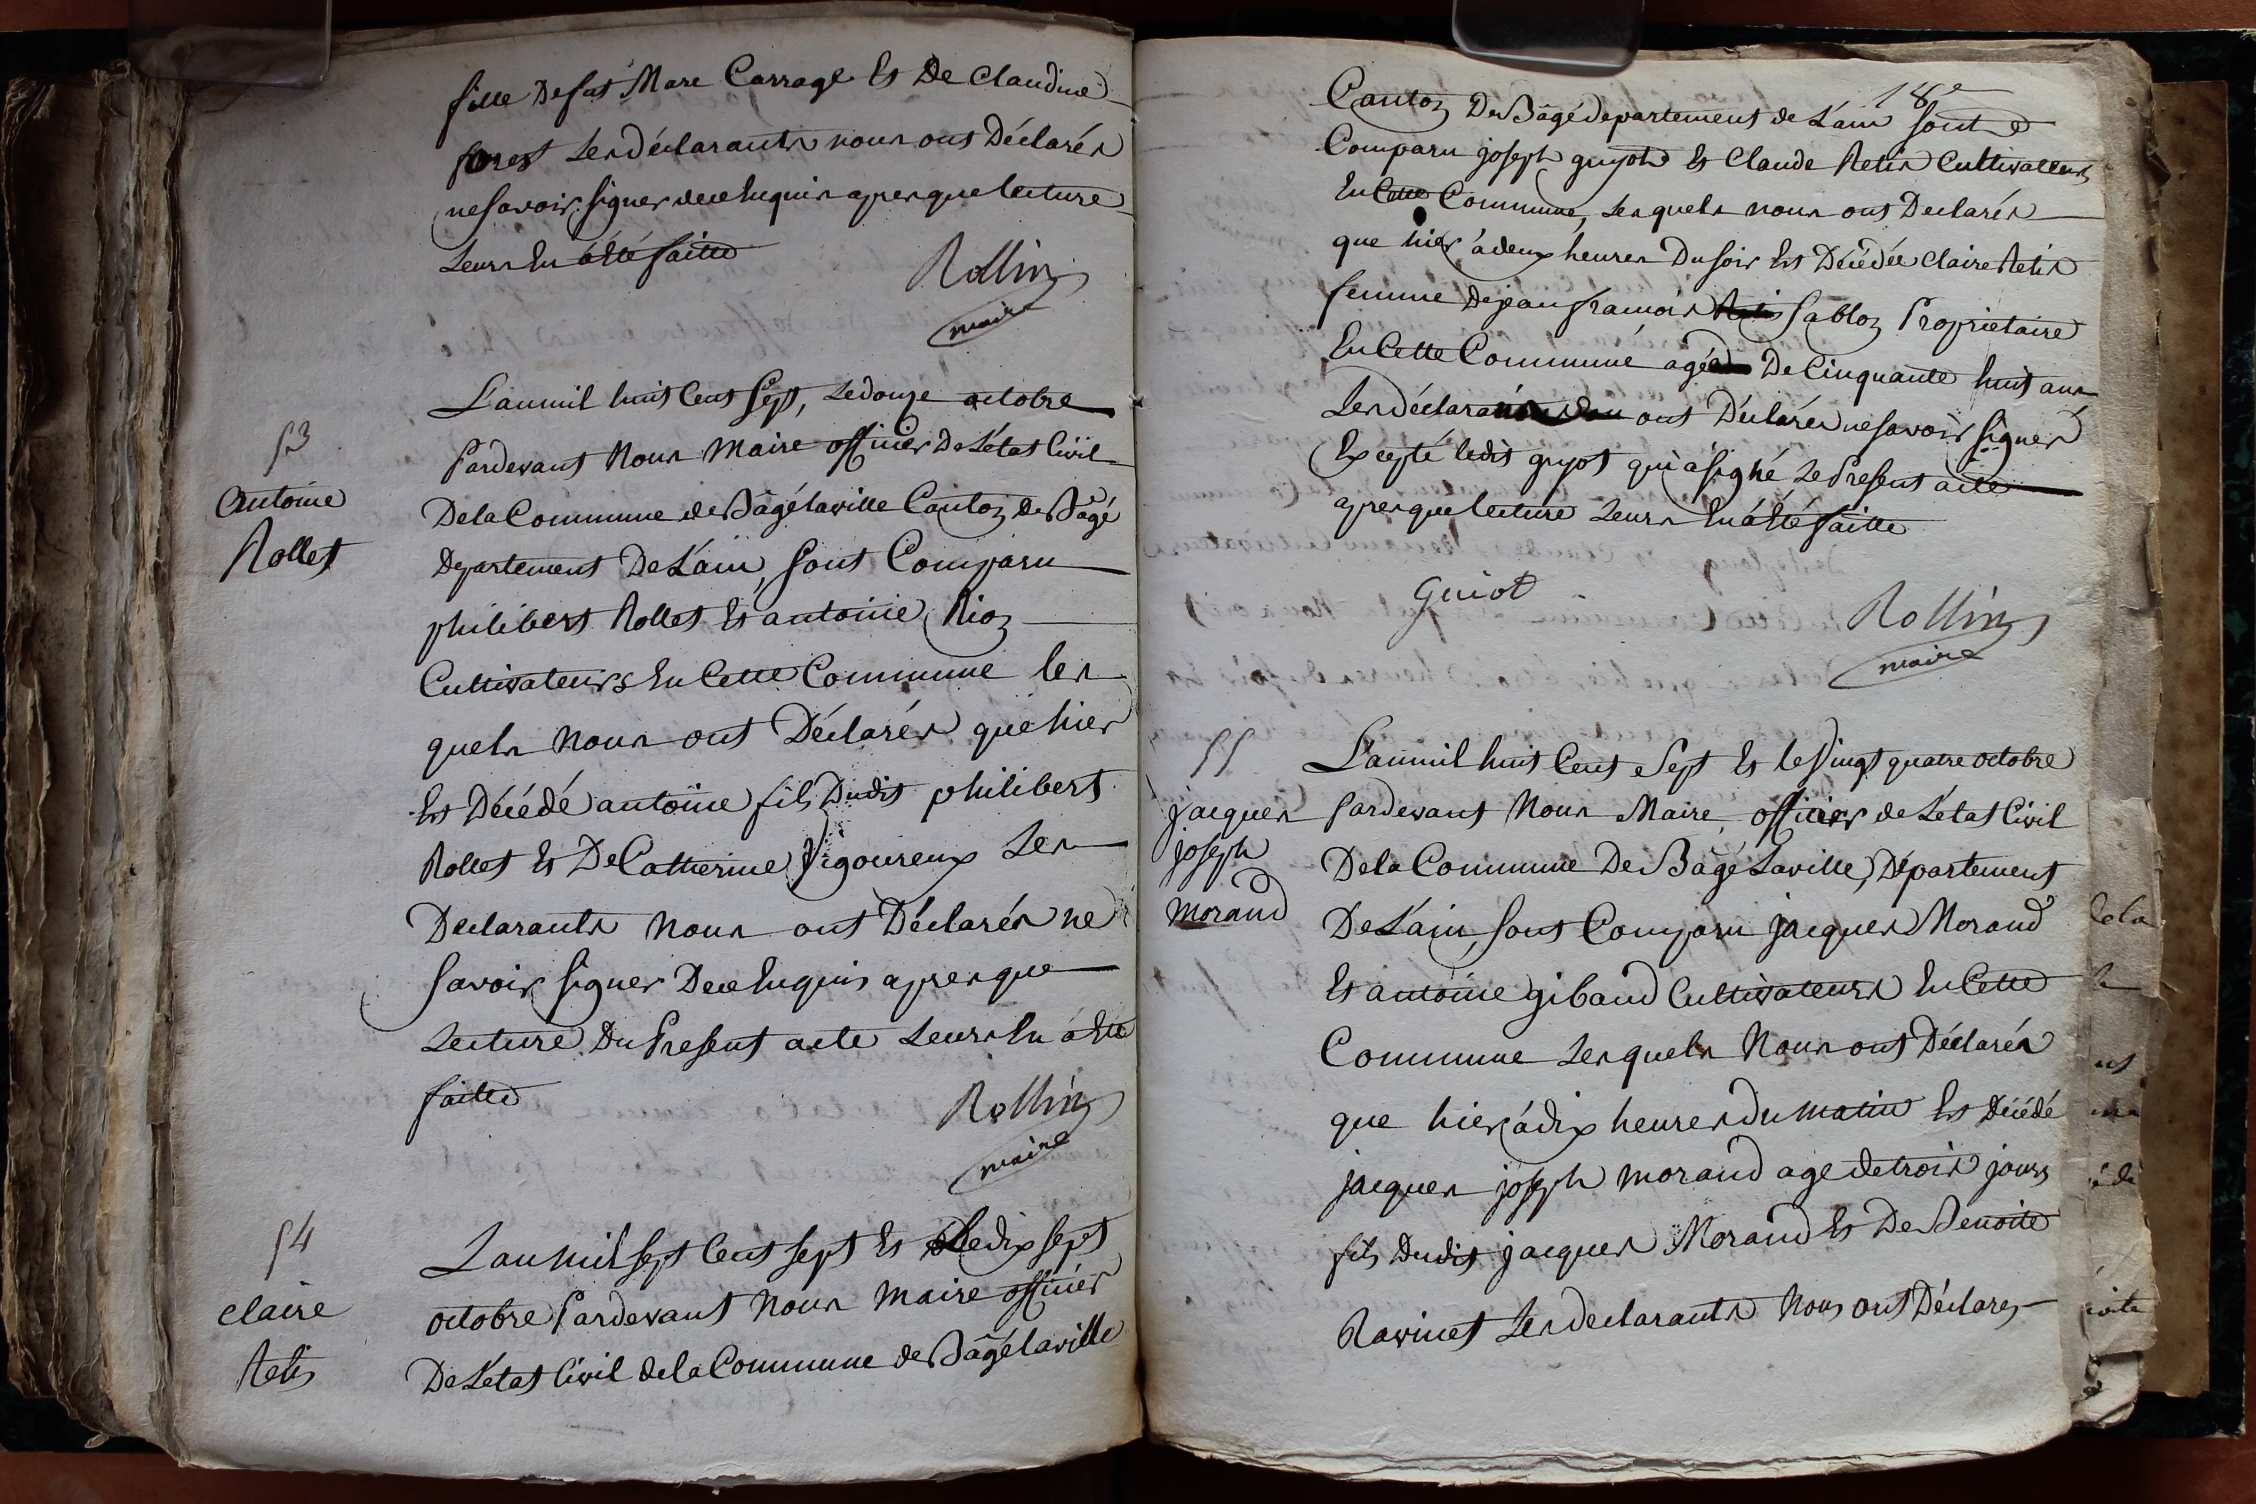 fille Defut Marc Carrage Et De Claudine
forest Lesdéclarants nous ont Déclarés
ne savoir signer dece Enquis apres que lecture
Leurs En à Eté faitte
Rollin
maire
53
antoine
Rollet
L'an mil huit Cent Sept, Le douze octobre
Pardevant Nous Maire officier De L'état Civil
De la Commune de Bâgé laville Canton de Bâgé
Departement De L'ain, Sont Comparu
philibert Rollet Et antoine Rion
Cultivateurs En Cette Commune les
quels Nous ont Déclarés que hier
Est Décédé antoine fils Dudit philibert
Rollet Et De Catherine Vigoureux Les
Declarants Nous ont Déclarés ne
Savoir Signer Dece Enquis apres que
Lecture Du Present acte Leurs En à Eté
faitte
Rollin
maire
54
claire
Retis
L'an mil sept Cent sept Et Le dix sept
octobre Pardevant Nous Maire officier
De L'état Civil de la Commune de Bâgé laville
18e
Canton De Bâgé departement de L'ain Sont
Comparu joseph guyot Et Claude Retis Cultivateurs
En Cette Commune, Lesquels nous ont Declarés
que hier à deux heures Du soir Est Décédée Claire Retis
femme De jean françois Sablon Proprietaire
En Cette Commune agée De Cinquante huit ans
Les déclarants ont Déclarés ne savoir Signer
Excepté ledit guyot qui à signé Le Present acte
apres que lecture Leurs En à Eté faitte
Guiot
Rollin
maire
55
jacques
joseph
morand
L'an mil huit Cent Sept Et le Vingt quatre octobre
Pardevant Nous Maire, officier de L'état Civil
De la Commune De Bâgé Laville, Département
De L'ain, Sont Comparu jacques Morand
Et antoine gibaud Cultivateurs En Cette
Commune Lesquels Nous ont Déclarés
que hier à dix heures du matin Est Décédé
jacques joseph morand age de trois jours
fils Dudit jacques Morand Et De Benoite
Ravinet Les declarants Nous ont Déclarés